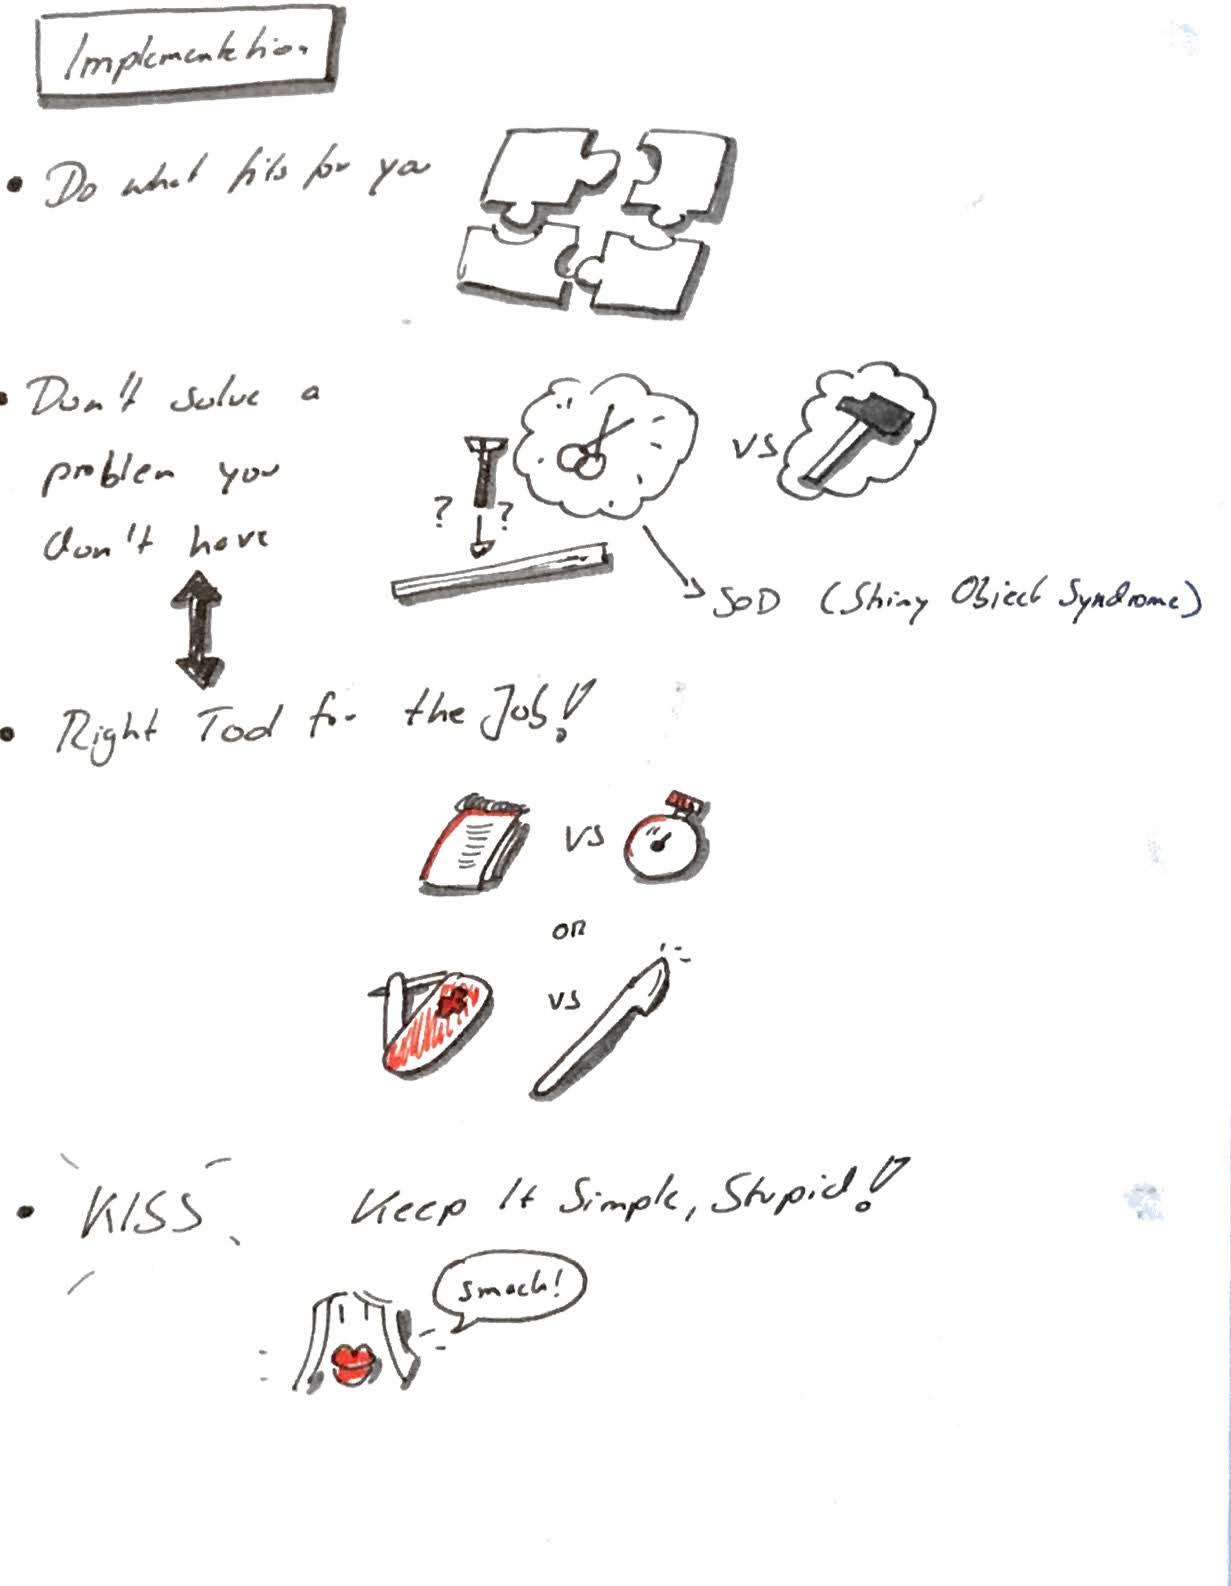 Implementation
• Do what fits for you
• Don't solve a
problem you
don't have
VS
? ?
SOD (Shiny Object Syndrome)
• Right Tool for the Job!
VS
OR
VS
• KISS Keep It Simple, Stupid!
smack!